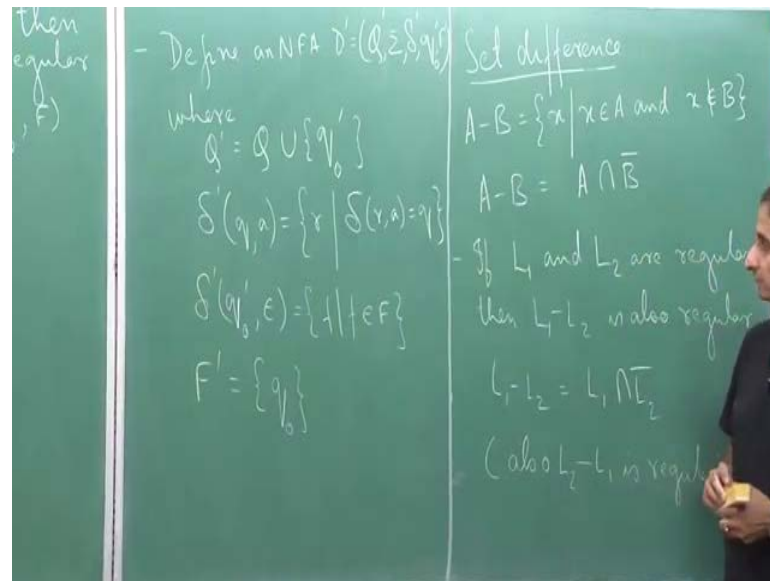 then
egular
, F)
- Define an NFA D'=(Q',Σ,δ',q₀',F')
where
Q' = Q ∪ {q₀'}
δ'(q,a)={r | δ(r,a)=q}
δ'(q₀',ε)={f|f∈F}
F' = {q₀}
Set difference
A-B={x|x∈A and x∉B}
A-B = A∩B̅
- If L₁ and L₂ are regular
then L₁-L₂ is also regular
L₁-L₂ = L₁∩L̅₂
(also L₂-L₁ is regul